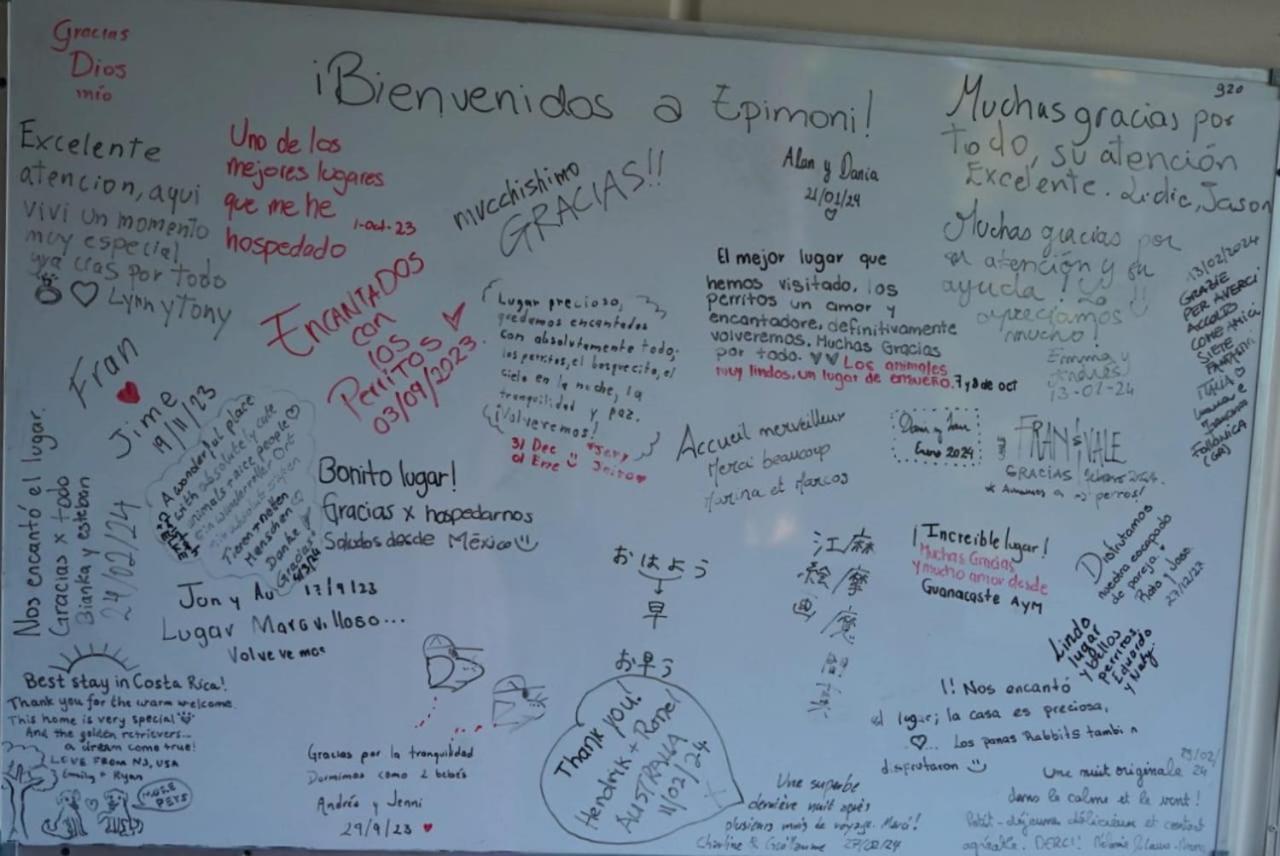 Gracias
Dios
mío
¡Bienvenidos a Epimoni!
Muchas gracias por
todo, su atención
Excelente. Lidic, Jason
920
Excelente
atencion, aqui
vivi un momento
muy especial
gracias por todo
Lynn y Tony
Uno de los
mejores lugares
que me he
hospedado
1-oct-23
mucchishimo
GRACIAS!!
Alan y Dania
21/01/24
Muchas gracias por
su atención y su
ayuda! Lo
apreciamos
mucho!
Emma y
Andrés
13-02-24
13/02/2024
GRAZIE
PER AVERCI
ACCOLTO
COME AMICI
SIETE
FANTASTICI
ITALIA
FOLLONICA
(GR)
ENCANTADOS
con
los
Perritos
03/09/2023
Lugar precioso,
quedamos encantados
con absolutamente todo,
los perritos, el bosquecito, el
cielo en la noche, la
tranquilidad y paz.
¡Volveremos!
31 Dec
01 Ene
El mejor lugar que
hemos visitado, los
perritos un amor y
encantadore, definitivamente
volveremos. Muchas Gracias
por todo. Los animales
muy lindos, un lugar de ensueño. 7 y 8 de oct
Fran
Jime
19/11/23
A wonderful place
with absolutely cute
animals + nice people
Ein wundervoller Ort
mit absolut süßen
Tieren + netten
Menschen
Danke
Gracias
Nos encantó el lugar.
Gracias x todo
Bianka y esteban
24/02/24
Bonito lugar!
Gracias x hospedarnos
Saludos desde México
Accueil merveilleux
Merci beaucoup
Marina et Marcos
Enero 2024
FRAN & VALE
GRACIAS, febrero 2024.
* Amamos a perros!
Jon y Au 17/9/23
Lugar Maravilloso...
Volveremos
おはよう
早
お早う
江麻
絵摩
画魔
¡Increible lugar!
Muchas Gracias
y mucho amor desde
Guanacaste AyM
Disfrutamos
nuestra escapada
de pareja
27/12/23
Lindo
lugar
y bellos
perritos,
Eduardo
y Naty.
Best stay in Costa Rica!
Thank you for the warm welcome.
This home is very special
And the golden retrievers...
a dream come true!
LOVE FROM NJ, USA
Emily + Ryan
MORE
PETS
Gracias por la tranquilidad
Dormimos como 2 bebés
Andrés y Jenni
29/9/23
Thank you!
Hendrik + Ronel
AUSTRALIA
11/02/24
!! Nos encantó
el lugar; la casa es preciosa,
... Los panas Rabbits también
disfrutaron
Une superbe
dernière nuit après
plusieurs mois de voyage. Merci!
Charline & Guillaume 27/02/24
Une nuit originale
dans le calme et le vent!
Petit-déjeuner délicieux et contact
agréable. MERCI!